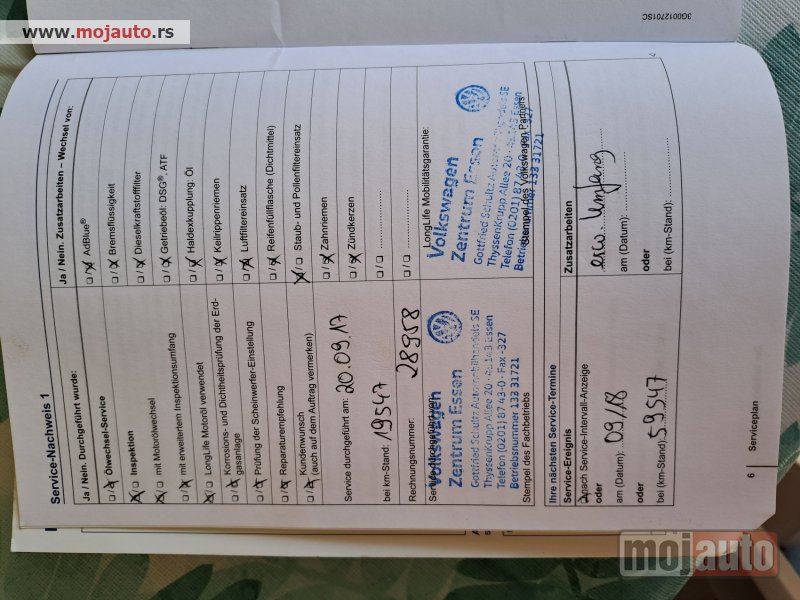 www.mojauto.rs
3G0012701SC
Service-Nachweis 1
Ja / Nein. Durchgeführt wurde:
Ölwechsel-Service
Inspektion
mit Motorölwechsel
mit erweitertem Inspektionsumfang
LongLife Motoröl verwendet
Korrosions- und Dichtheitsprüfung der Erd-
gasanlage
Prüfung der Scheinwerfer-Einstellung
Reparaturempfehlung
Kundenwunsch
(auch auf dem Auftrag vermerken)
Service durchgeführt am: 20.09.17
bei km-Stand: 19547
Rechnungsnummer: 28958
Volkswagen
Zentrum Essen
Gottfried Schultz Automobilhandels SE
ThyssenKrupp Allee 20 · 45143 Essen
Telefon (0201) 87 43-0 · Fax -327
Betriebsnummer 133 31721
Stempel des Fachbetriebs
Ja / Nein. Zusatzarbeiten – Wechsel von:
AdBlue®
Bremsflüssigkeit
Dieselkraftstofffilter
Getriebeöl: DSG®, ATF
Haldexkupplung: Öl
Keilrippenriemen
Luftfiltereinsatz
Reifenfüllflasche (Dichtmittel)
Staub- und Pollenfiltereinsatz
Zahnriemen
Zündkerzen
LongLife Mobilitätsgarantie:
Volkswagen
Zentrum Essen
Gottfried Schultz Automobilhandels SE
ThyssenKrupp Allee 20 · 45143 Essen
Telefon (0201) 87 43-0 · Fax -327
133 31721
Stempel des Volkswagen Partners
Ihre nächsten Service-Termine
Service-Ereignis
nach Service-Intervall-Anzeige
oder
am (Datum): 09/18
oder
bei (km-Stand): 59547
Zusatzarbeiten
erw. Umfang
am (Datum):
oder
bei (km-Stand):
6 Serviceplan
mojauto